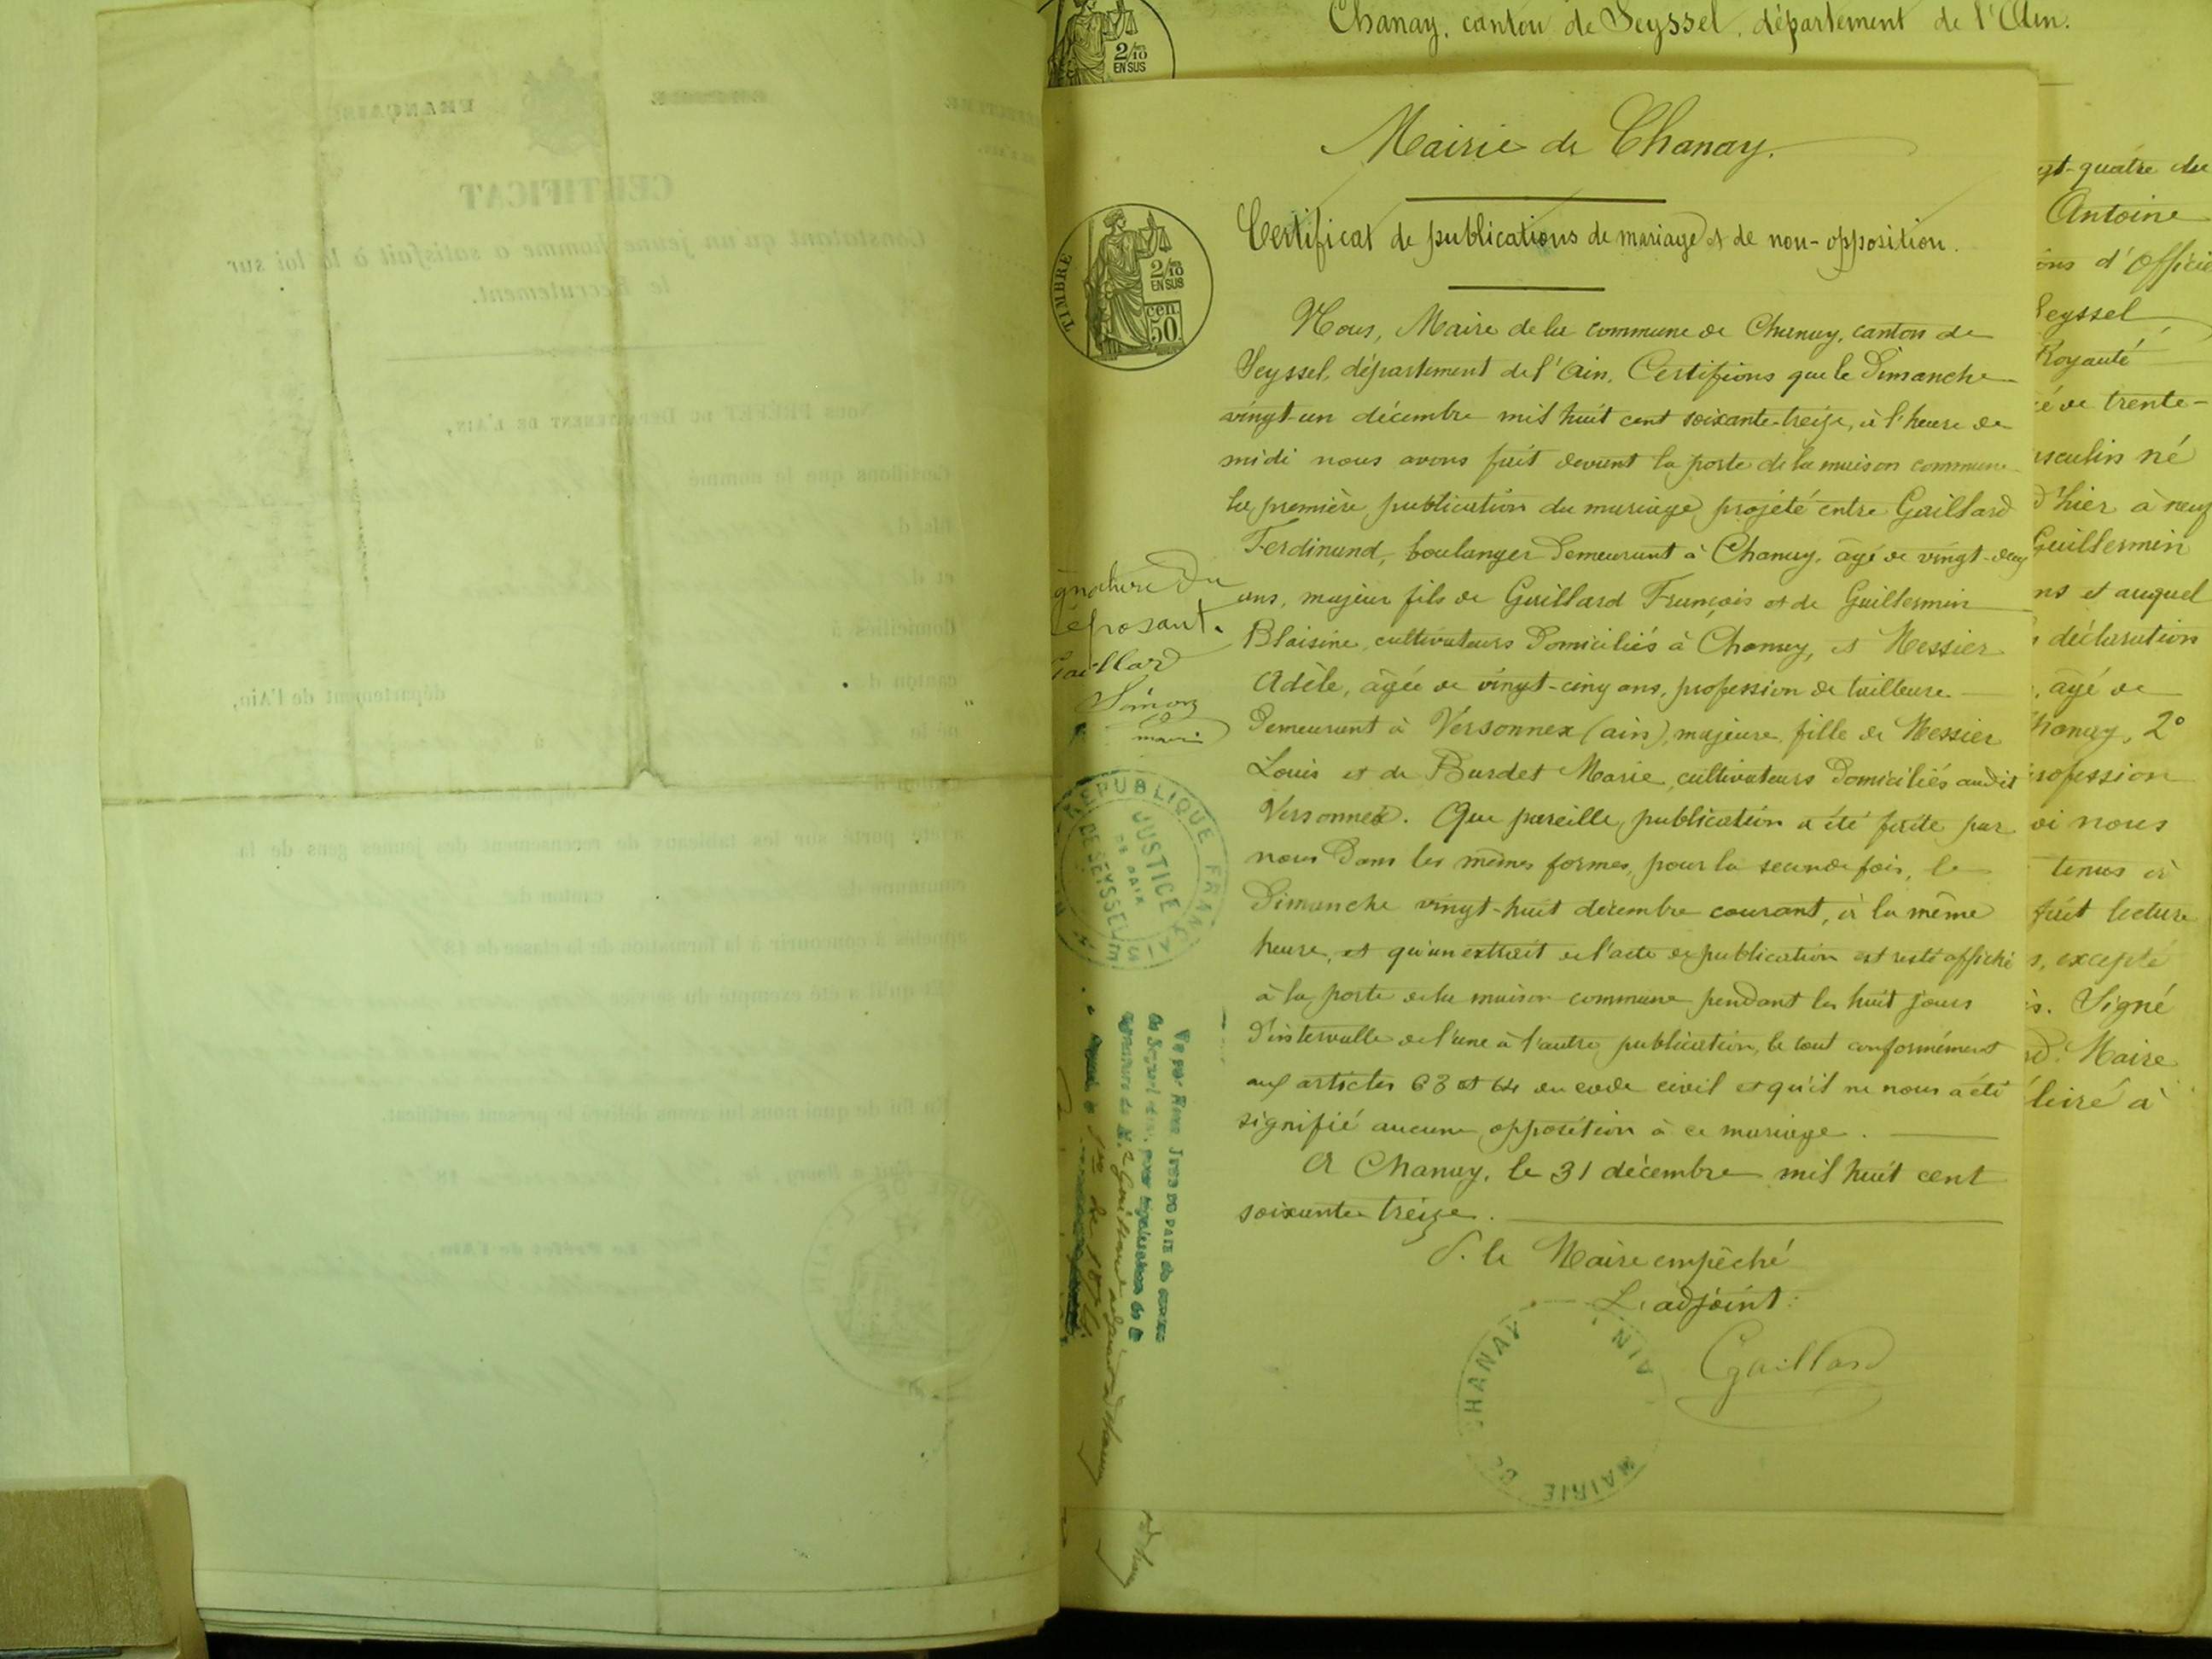 Chanay, canton de Seyssel, département de l'Ain.
Mairie de Chanay.
Certificat de publications de mariage et de non-opposition.
TIMBRE
2/10
EN SUS
cen.
50
Nous, Maire de la commune de Chanay, canton de
Seyssel, département de l'Ain, Certifions que le Dimanche
vingt-un décembre mil huit cent soixante-treize, à l'heure de
midi nous avons fait devant la porte de la maison commune
la première publication du mariage projété entre Gaillard
Ferdinand, boulanger Demeurant à Chanay, âgé de vingt-deux
ans, majeur fils de Gaillard François et de Guillermin
Blaisine, cultivateurs Domiciliés à Chanay, et Messier
Adèle, âgée de vingt-cinq ans, profession de tailleuse
Demeurant à Versonnex (ain), majeure, fille de Messier
Louis et de Burdet Marie, cultivateurs Domiciliés audit
Versonnex. Que pareille publication a été faite par
nous Dans les mêmes formes, pour la seconde fois, le
Dimanche vingt-huit décembre courant, à la même
heure, et qu'un extrait de l'acte de publication est resté affiché
à la porte de la maison commune pendant les huit jours
D'intervalle de l'une à l'autre publication, le tout conformément
aux articles 63 et 64 du code civil et qu'il ne nous a été
signifié aucune opposition à ce mariage.
A Chanay, le 31 décembre mil huit cent
soixante treize.
P. le Maire empêché
L'adjoint:
Gaillard
MAIRIE DE CHANAY AIN
gnature Du
éposant.
Gaillard
Simon
REPUBLIQUE FRANÇAISE
JUSTICE
DE PAIX
DE SEYSSEL
Vu par Nous JUGE DE PAIX du canton
de Seyssel (Ain), pour légalisation de la
signature de M. Gaillard adjoint à Chanay
2/10
EN SUS
gt-quatre du
Antoine
ons d'Officier
Seyssel
Royauté
é de trente-
asculin né
d'hier à neuf
Guillermin
ns et auquel
déclaration
, âgé de
Chanay, 2°
profession
oi nous
tenus à
fait lecture
s, excepté
s. Signé
rd. Maire
livré à
FRANÇAIS
CERTIFICAT
Constatant qu'un jeune homme a satisfait à la loi sur
le Recrutement.
Nous PRÉFET DU DÉPARTEMENT DE L'AIN,
Certifions que le nommé
fils d
et d
domiciliés à
canton d
département de l'Ain,
né le
à
canton d
a été porté sur les tableaux de recensement des jeunes gens de la
commune d
canton de
appelés à concourir à la formation de la classe de 18
Et qu'il a été exempté du service
En foi de quoi nous lui avons délivré le présent certificat.
Le Préfet de l'Ain,